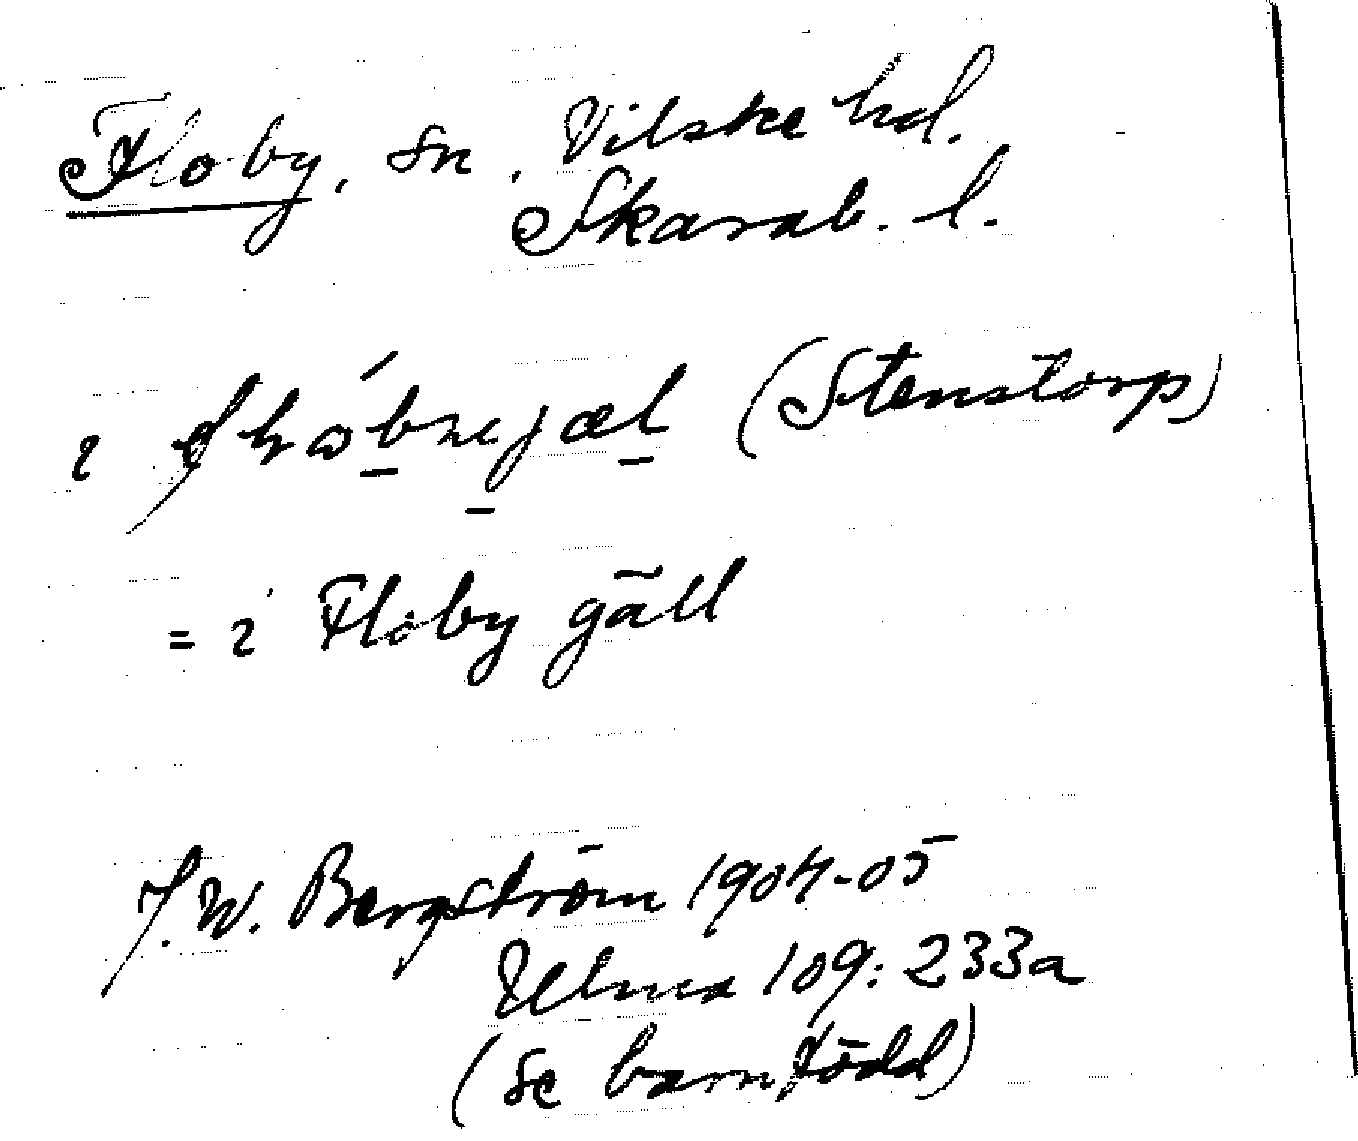 Floby, sn, Vilske hd.
Skarab. l.
(Stenstorp)
= i Floby gäll
J. W. Bergström 1904-05
Ulma 109: 233a
(se barnfödd)